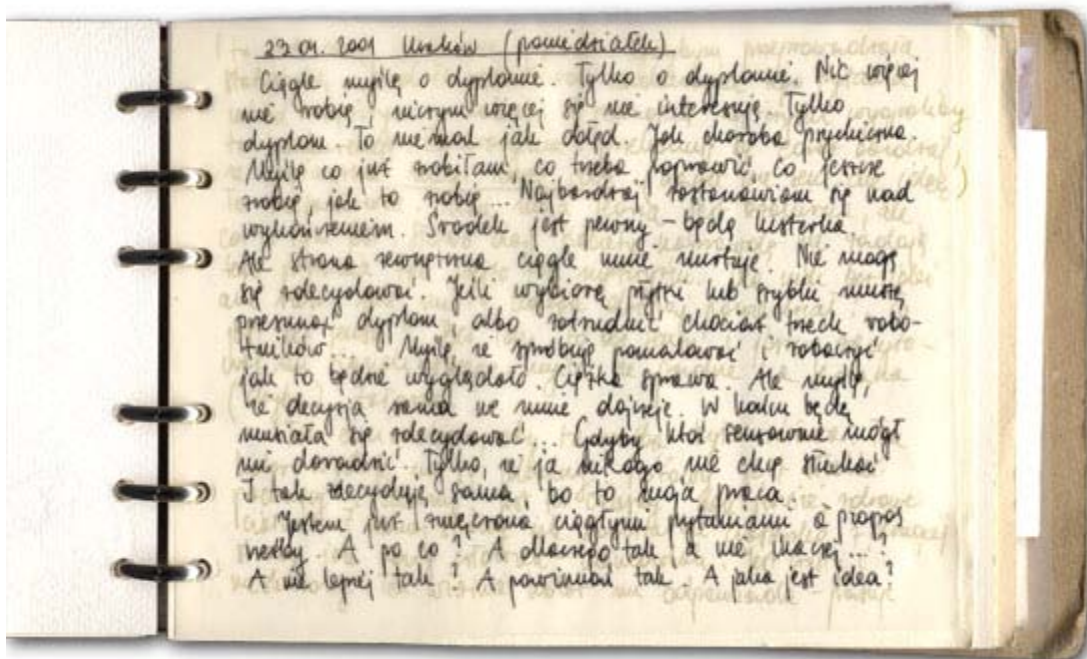 23.04.2001 Kraków (poniedziałek)
Ciągle myślę o dyplomie. Tylko o dyplomie. Nic więcej
nie robię, niczym więcej się nie interesuję. Tylko
dyplom. To niemal jak obłęd. Jak choroba psychiczna.
Myślę co już zrobiłam, co trzeba poprawić, co jeszcze
zrobię, jak to zrobię... Najbardziej zastanawiam się nad
wykończeniem. Środek jest pewny - będą lusterka.
Ale strona zewnętrzna ciągle mnie nurtuje. Nie mogę
się zdecydować. Jeśli wybiorę płytki lub szybki muszę
przesunąć dyplom, albo zatrudnić chociaż trzech robo-
tników... Myślę, że spróbuję pomalować i zobaczyć
jak to będzie wyglądało. Ciężka sprawa. Ale myślę,
że decyzja sama we mnie dojrzeje. W końcu będę
musiała się zdecydować... Gdyby ktoś sensownie mógł
mi doradzić. Tylko, że ja nikogo nie chcę słuchać
I tak zdecyduję sama bo to moja praca.
Jestem już zmęczona ciągłymi pytaniami a propos
rzeźby. A po co? A dlaczego tak a nie inaczej...?
A nie lepiej tak? A powinnaś tak. A jaka jest idea?